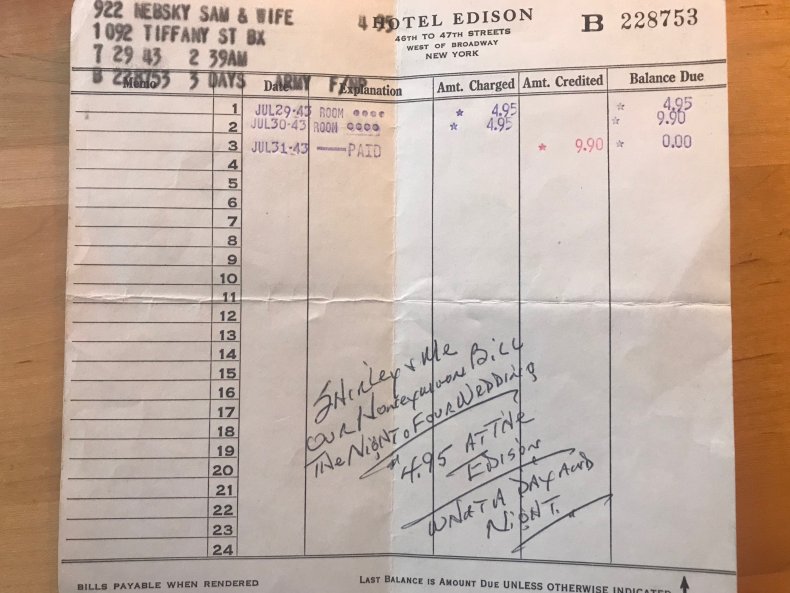 922 NEBSKY SAM & WIFE 4 95
HOTEL EDISON B 228753
1 092 TIFFANY ST BX
46TH TO 47TH STREETS
WEST OF BROADWAY
NEW YORK
7 29 43 2 39AM
B 228753 3 DAYS ARMY
Memo Date Explanation Amt. Charged Amt. Credited Balance Due
1 JUL29-43 ROOM * 4.95 * 4.95
2 JUL30-43 ROOM * 4.95 * 9.90
3 JUL31-43 PAID * 9.90 * 0.00
4
5
6
7
8
9
10
11
12
13
14
15
16
17
18
19
20
21
22
23
24
SHIRLEY & ME
OUR HONEYMOON BILL
THE NIGHT OF OUR WEDDING
4.95 AT THE
EDISON
WHAT A DAY AND
NIGHT.
BILLS PAYABLE WHEN RENDERED LAST BALANCE IS AMOUNT DUE UNLESS OTHERWISE INDICATED